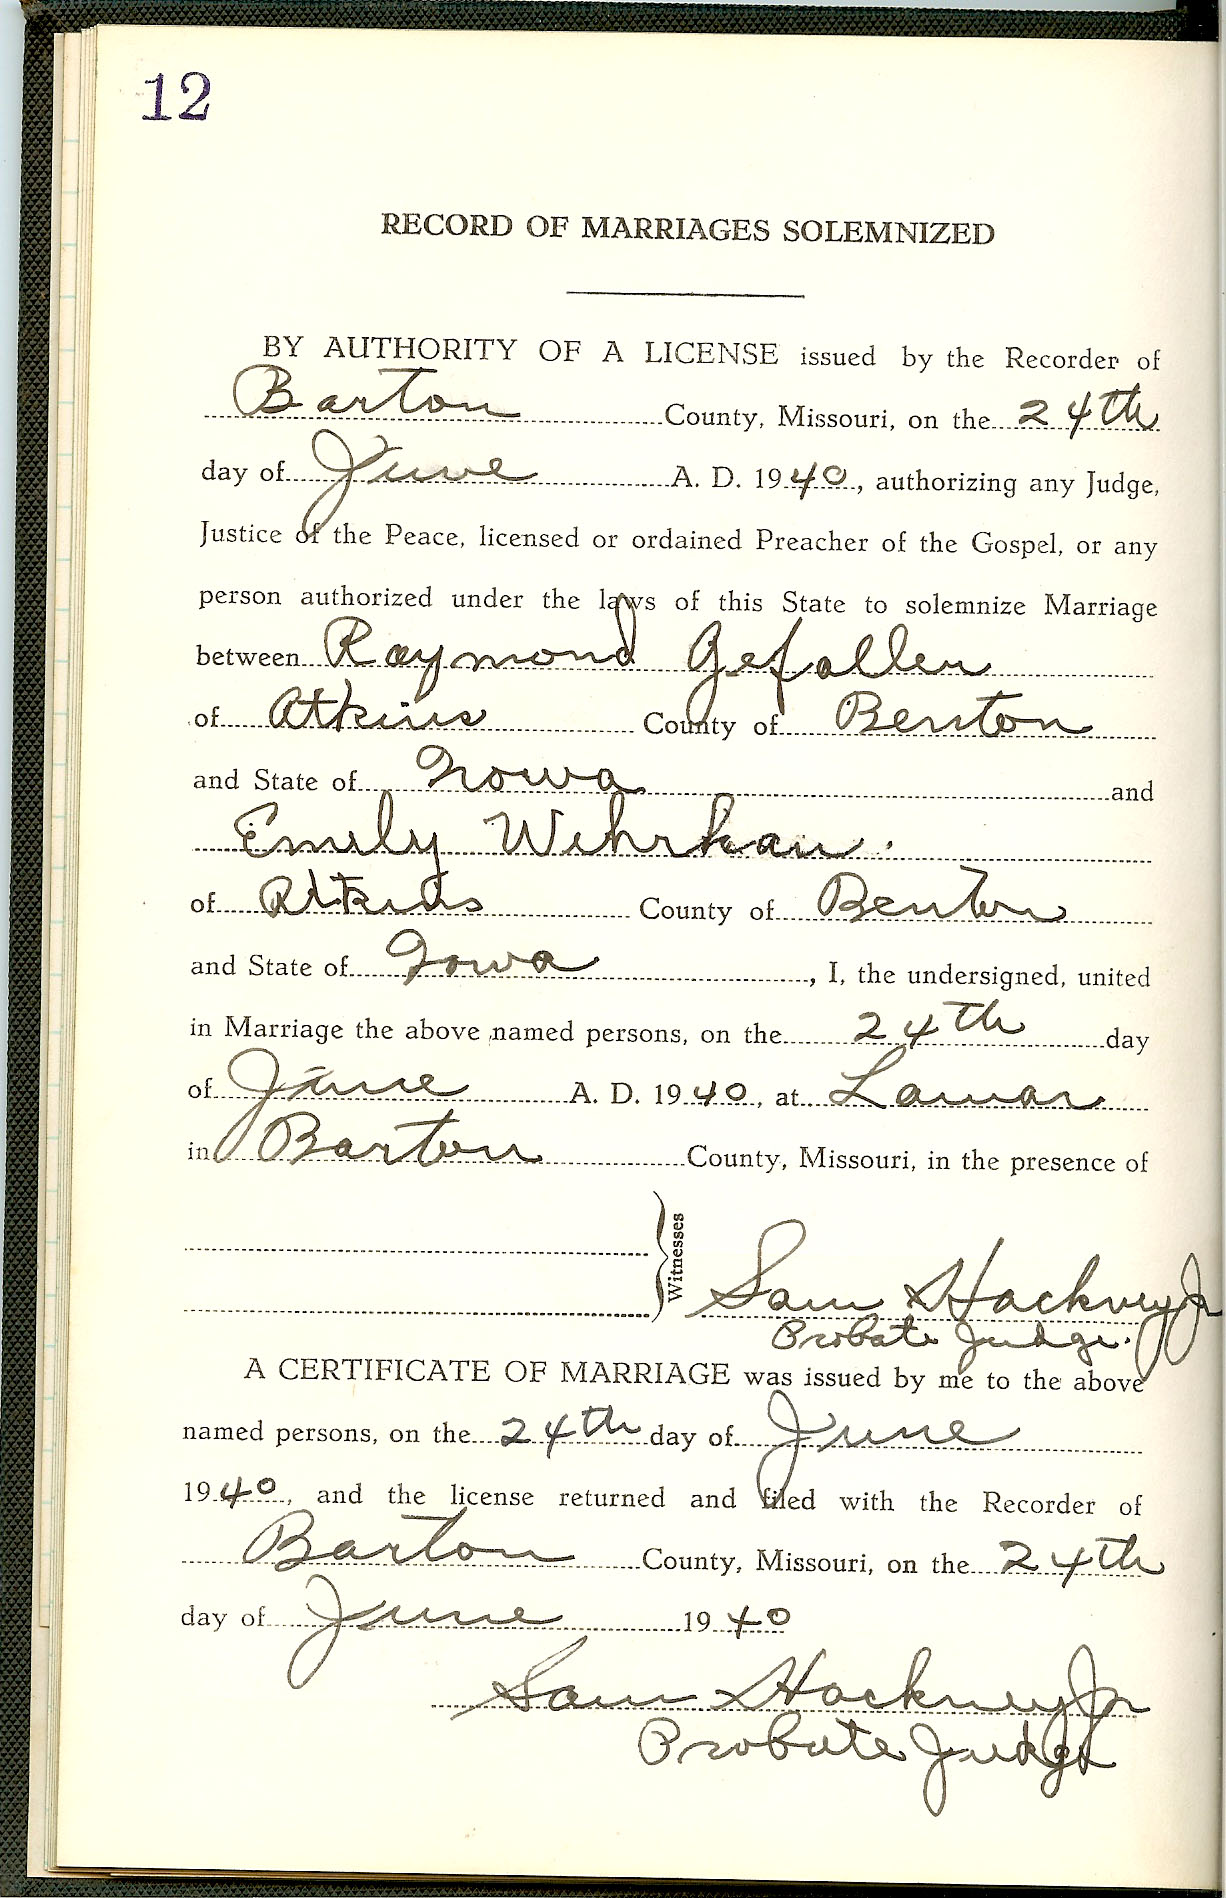 12
RECORD OF MARRIAGES SOLEMNIZED
BY AUTHORITY OF A LICENSE issued by the Recorder of
Barton County, Missouri, on the 24th
day of June A. D. 1940, authorizing any Judge,
Justice of the Peace, licensed or ordained Preacher of the Gospel, or any
person authorized under the laws of this State to solemnize Marriage
between Raymond Gefaller
of Atkins County of Benton
and State of Iowa and
Emily Wehrkan.
of Atkins County of Benton
and State of Iowa, I, the undersigned, united
in Marriage the above named persons, on the 24th day
of June A. D. 1940, at Lamar
in Barton County, Missouri, in the presence of
Witnesses
Sam Hackney Jr
Probate Judge.
A CERTIFICATE OF MARRIAGE was issued by me to the above
named persons, on the 24th day of June
1940, and the license returned and filed with the Recorder of
Barton County, Missouri, on the 24th
day of June 1940
Sam Hackney Jr
Probate Judge